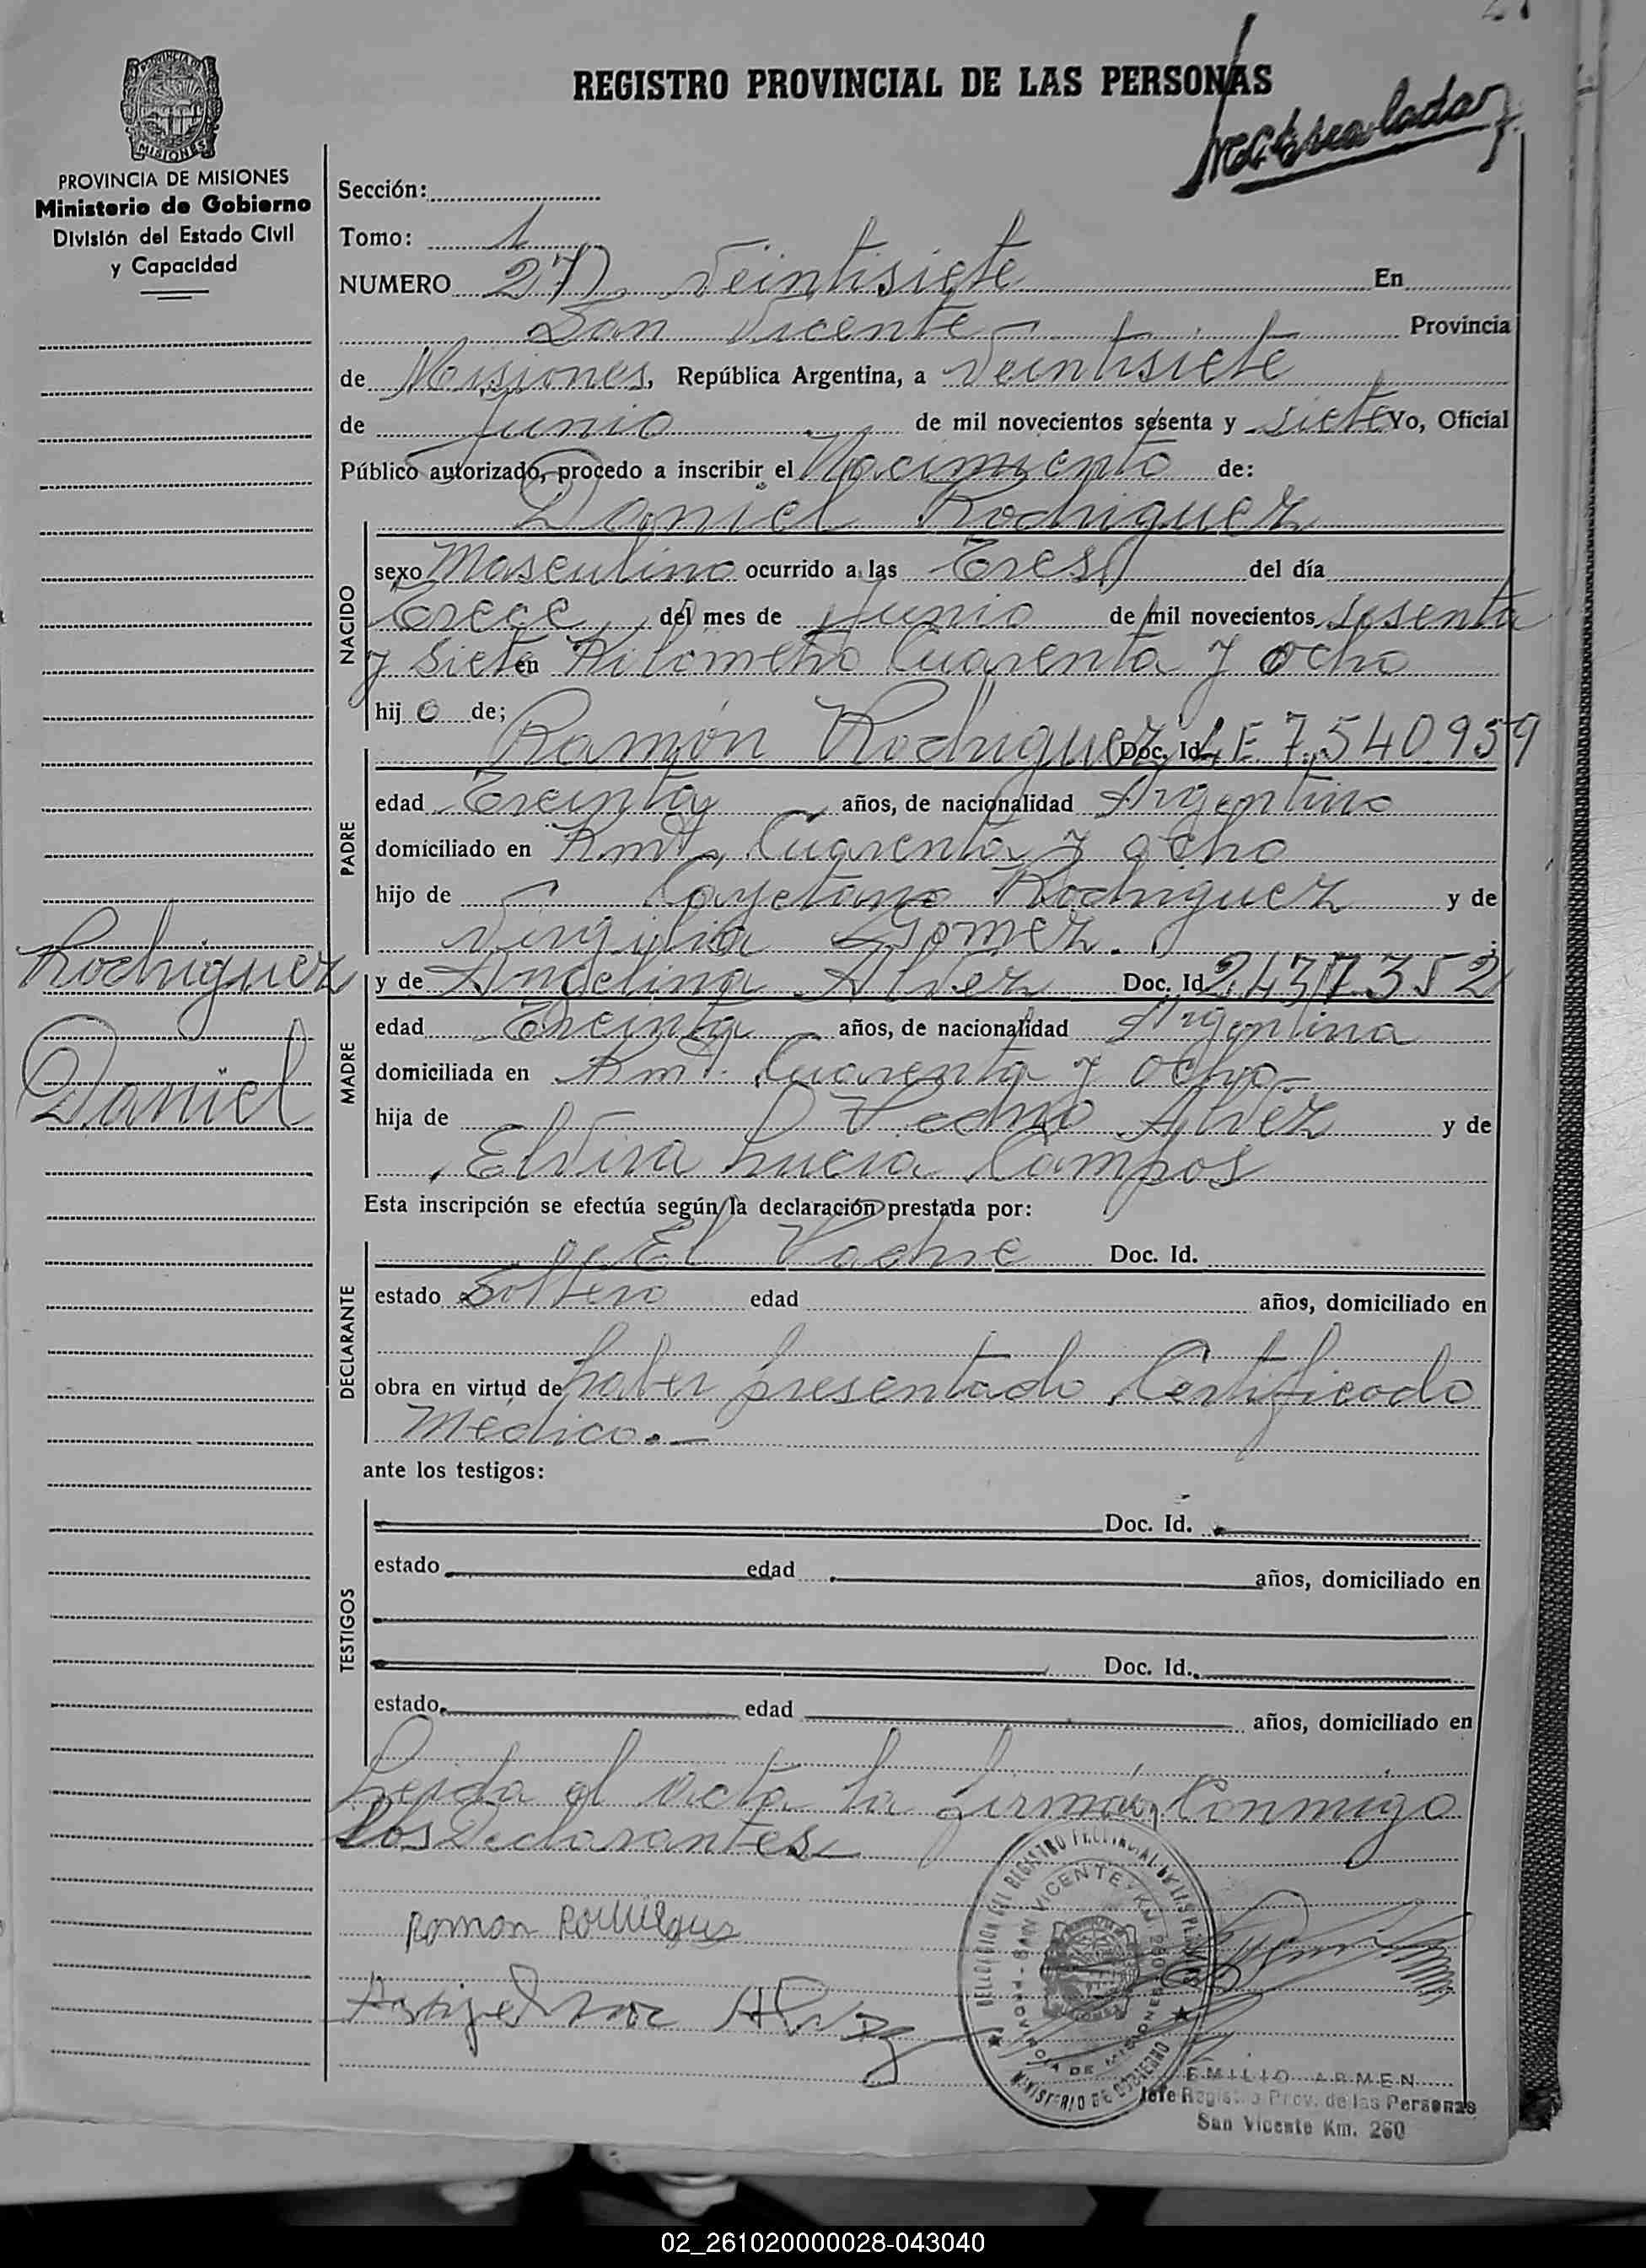 REGISTRO PROVINCIAL DE LAS PERSONAS
MISIONES
PROVINCIA DE MISIONES
Ministerio de Gobierno
División del Estado Civil
y Capacidad
Rodriguez
Daniel
Sección:
Tomo: 1
NUMERO 27) Veintisiete En
San Vicente Provincia
de Misiones, República Argentina, a Veintisiete
de Junio de mil novecientos sesenta y siete Yo, Oficial
Público autorizado, procedo a inscribir el Nacimiento de:
Daniel Rodriguez
NACIDO
sexo Masculino ocurrido a las Tres del día
Trece del mes de Junio de mil novecientos sesenta
y Siete en Kilometro Cuarenta y ocho
hijo de;
PADRE
Ramón Rodriguez Doc. Id. LE 7.540.959
edad Treinta años, de nacionalidad Argentino
domiciliado en Kmt. Cuarenta y ocho
hijo de Cayetano Rodriguez y de
Virgilia Gomez.
MADRE
y de Angelina Alvez Doc. Id. 2.437.352
edad Treinta años, de nacionalidad Argentina
domiciliada en Kmt. Cuarenta y ocho.-
hija de Pedro Alvez y de
Elvira Lucia Campos
Esta inscripción se efectúa según la declaración prestada por:
DECLARANTE
El Padre Doc. Id.
estado Soltero edad años, domiciliado en
obra en virtud de haber presentado Certificado
Médico.-
ante los testigos:
TESTIGOS
Doc. Id.
estado edad años, domiciliado en
Doc. Id.
estado edad años, domiciliado en
Leida el acta la firmán Conmigo
los Declarantes
Ramon Rodriguez
Angelina Alvez
SAN VICENTE - KM. 260
PROVINCIA DE MISIONES
MINISTERIO DE GOBIERNO
EMILIO ARMEN
Jefe Registro Prov. de las Personas
San Vicente Km. 260
02_261020000028-043040